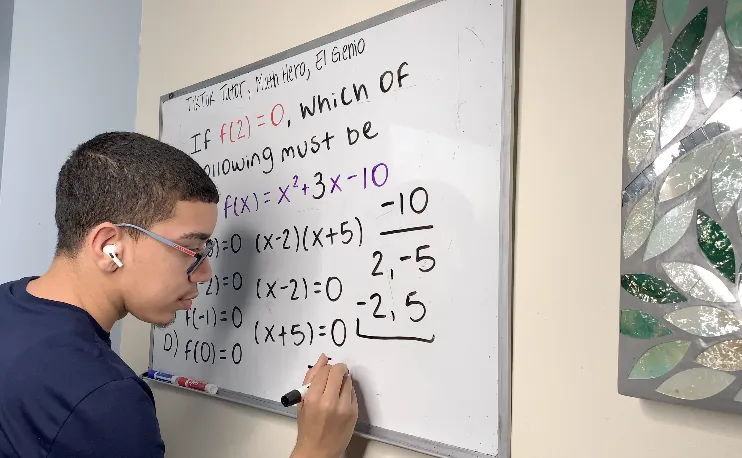 Tutor, Math Hero, El Genio
If f(2) = 0, which of
following must be
f(x) = x²+3x-10
)=0 (x-2)(x+5)
2)=0 (x-2)=0
f(-1)=0 (x+5)=0
D) f(0)=0
-10
2,-5
-2,5